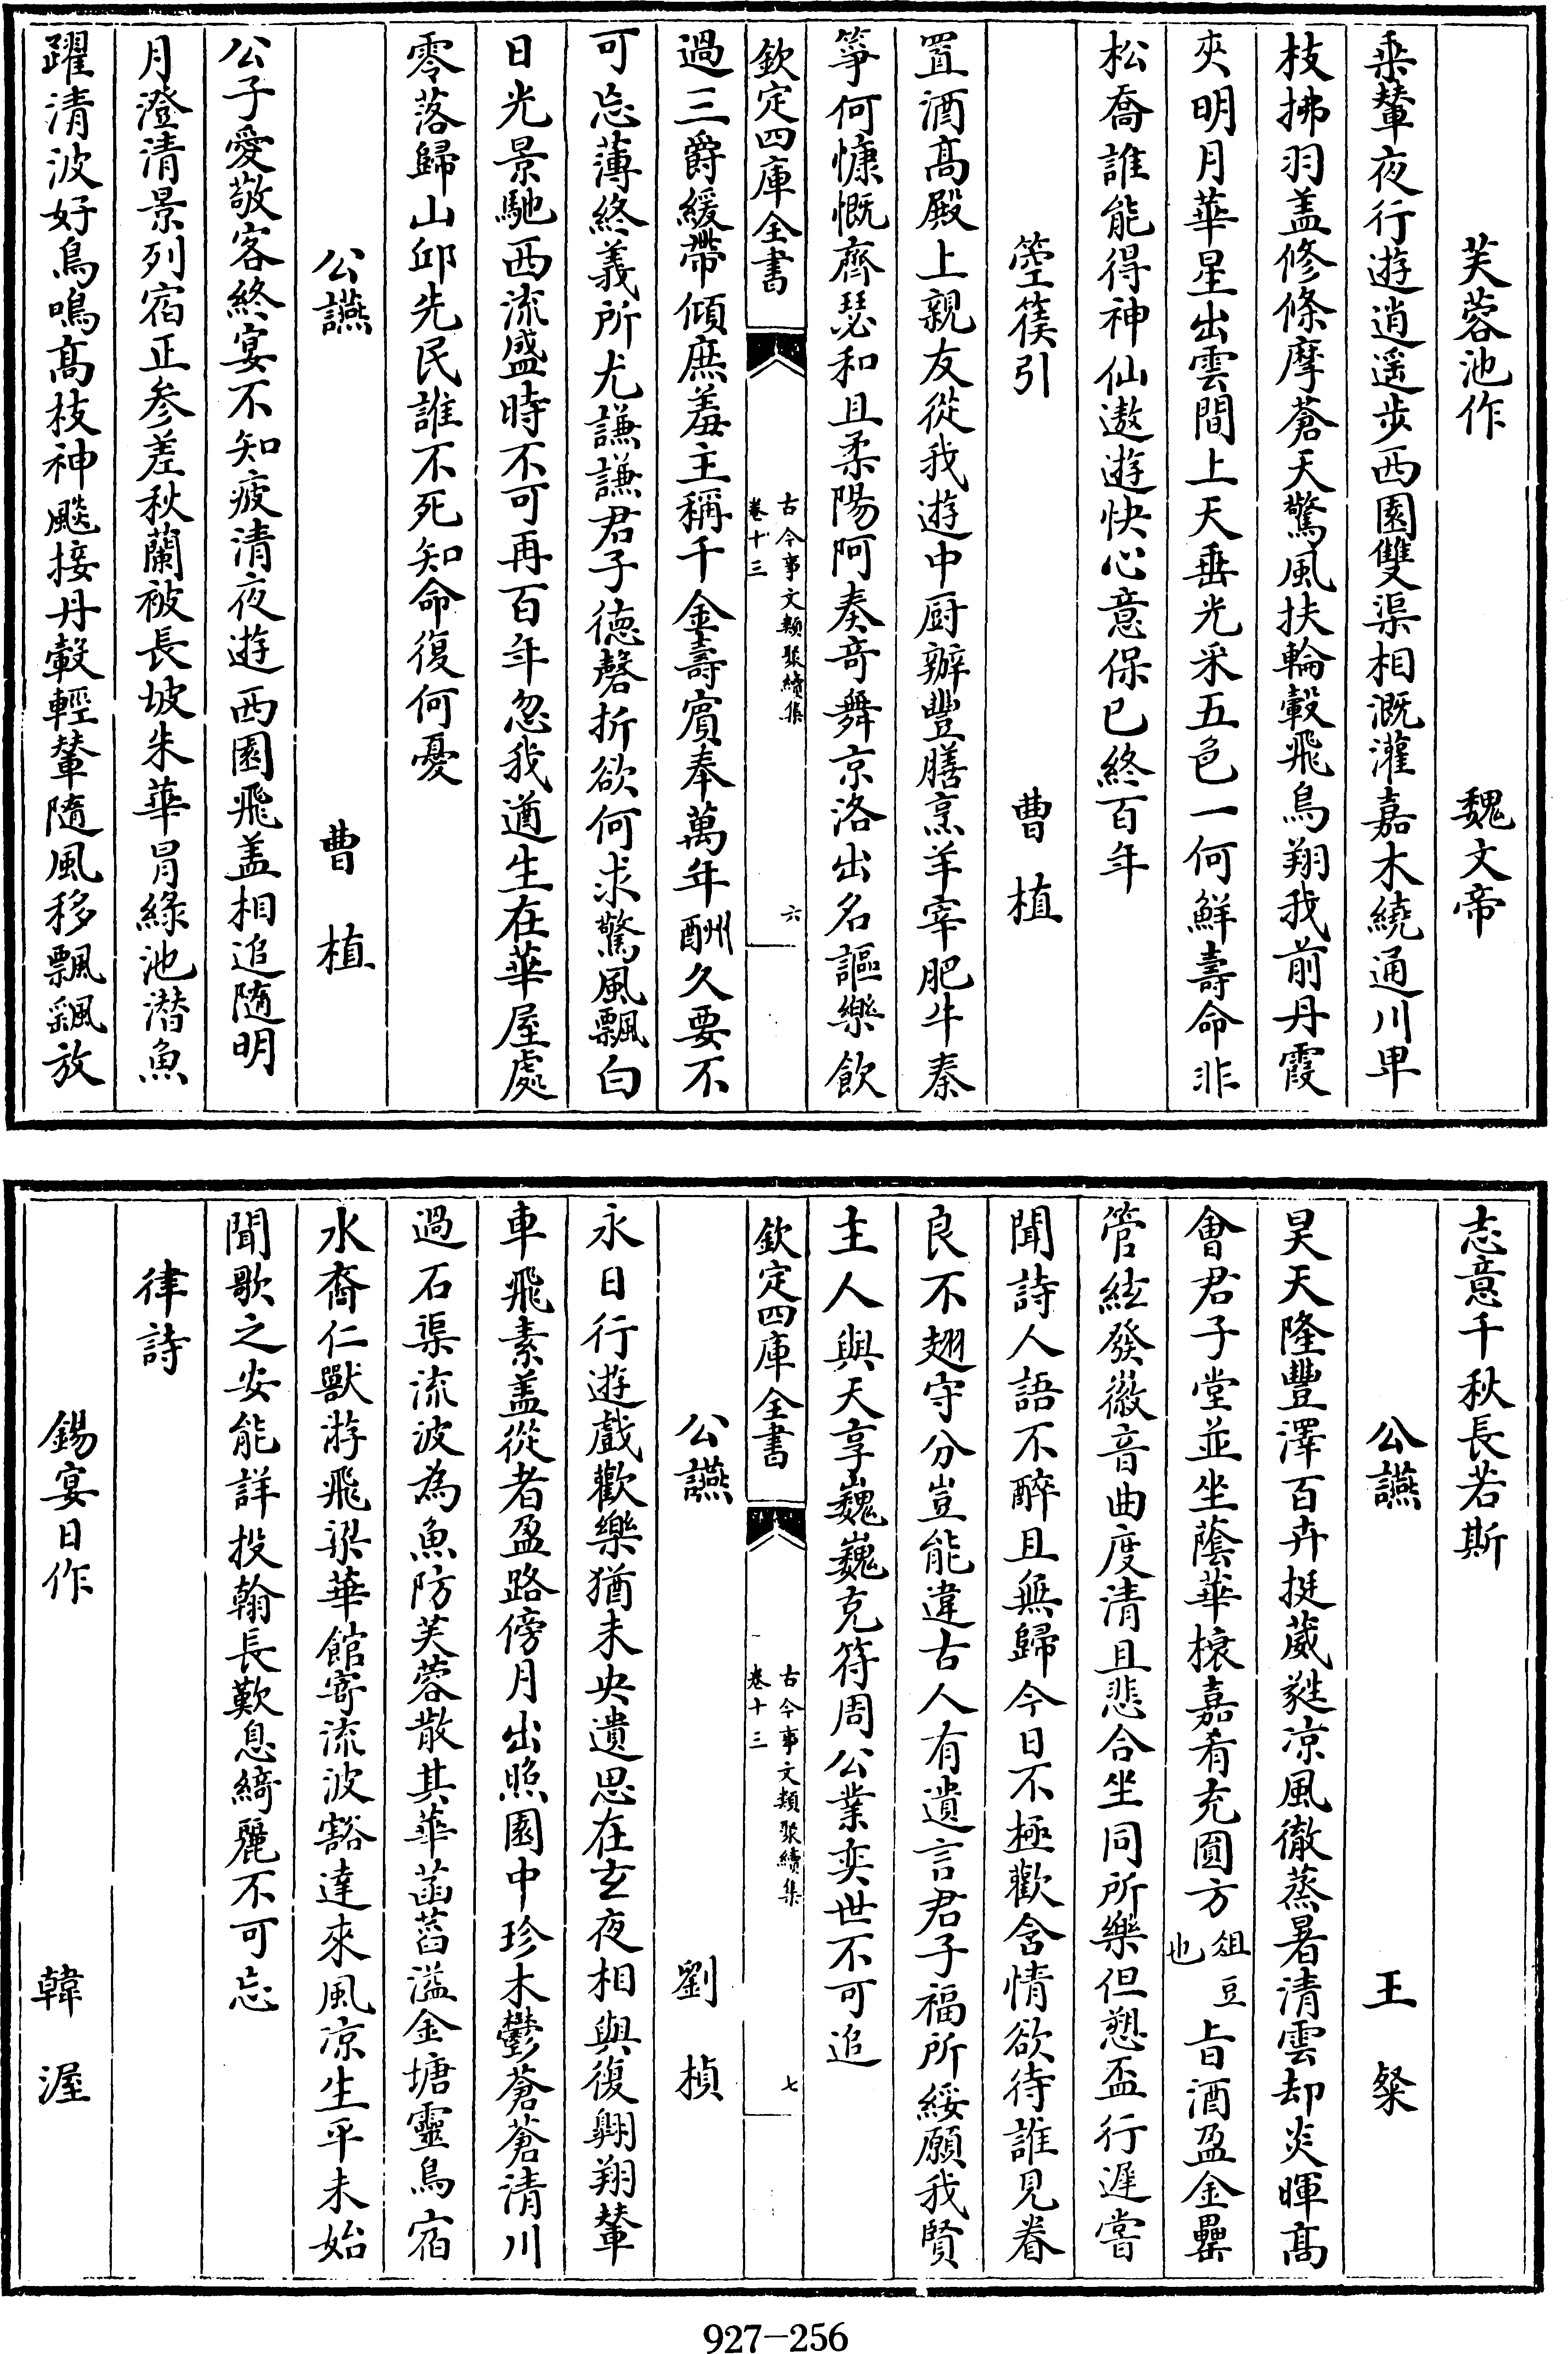 芙蓉池作 魏文帝
乗輦夜行遊逍遥步西園雙渠相溉灌嘉木繞通川卑
枝拂羽盖修條摩蒼天驚風扶輪轂飛鳥翔我前丹霞
夾明月華星出雲間上天垂光采五色一何鮮壽命非
松喬誰能得神仙遨遊快心意保已終百年
箜篌引 曹植
置酒髙殿上親友從我遊中厨辦豐膳烹羊宰肥牛秦
箏何慷慨齊瑟和且柔陽阿奏奇舞京洛出名謳樂飲
欽定四庫全書
古今事文類聚續集
卷十三
六
過三爵緩帶傾庶羞主稱千金壽賓奉萬年酬久要不
可忘薄終義所尤謙謙君子德磬折欲何求驚風飄白
日光景馳西流盛時不可再百年忽我遒生在華屋處
零落歸山邱先民誰不死知命復何憂
公讌 曹植
公子愛敬客終宴不知疲清夜遊西園飛盖相追随明
月澄清景列宿正参差秋蘭被長坡朱華冐綠池潛魚
躍清波好鳥鳴髙枝神飈接丹轂輕輦隨風移飄颻放
志意千秋長若斯
公讌 王粲
昊天隆豐澤百卉挺葳蕤凉風徹蒸暑清雲却炎暉髙
會君子堂並坐蔭華榱嘉肴充圓方俎豆也㫖酒盈金罍
管絃發徽音曲度清且悲合坐同所樂但愬盃行遲嘗
聞詩人語不醉且無歸今日不極歡含情欲待誰見眷
良不翅守分豈能違古人有遺言君子福所綏願我賢
主人與天享巍巍克符周公業奕世不可追
欽定四庫全書
古今事文類聚續集
卷十三
七
公讌 劉楨
永日行遊戲歡樂猶未央遺思在玄夜相與復翺翔輦
車飛素盖從者盈路傍月出照園中珍木鬱蒼蒼清川
過石渠流波為魚防芙蓉散其華菡萏溢金塘靈鳥宿
水裔仁獸游飛梁華館寄流波豁達來風凉生平未始
聞歌之安能詳投翰長歎息綺麗不可忘
律詩
錫宴日作 韓渥
927-256